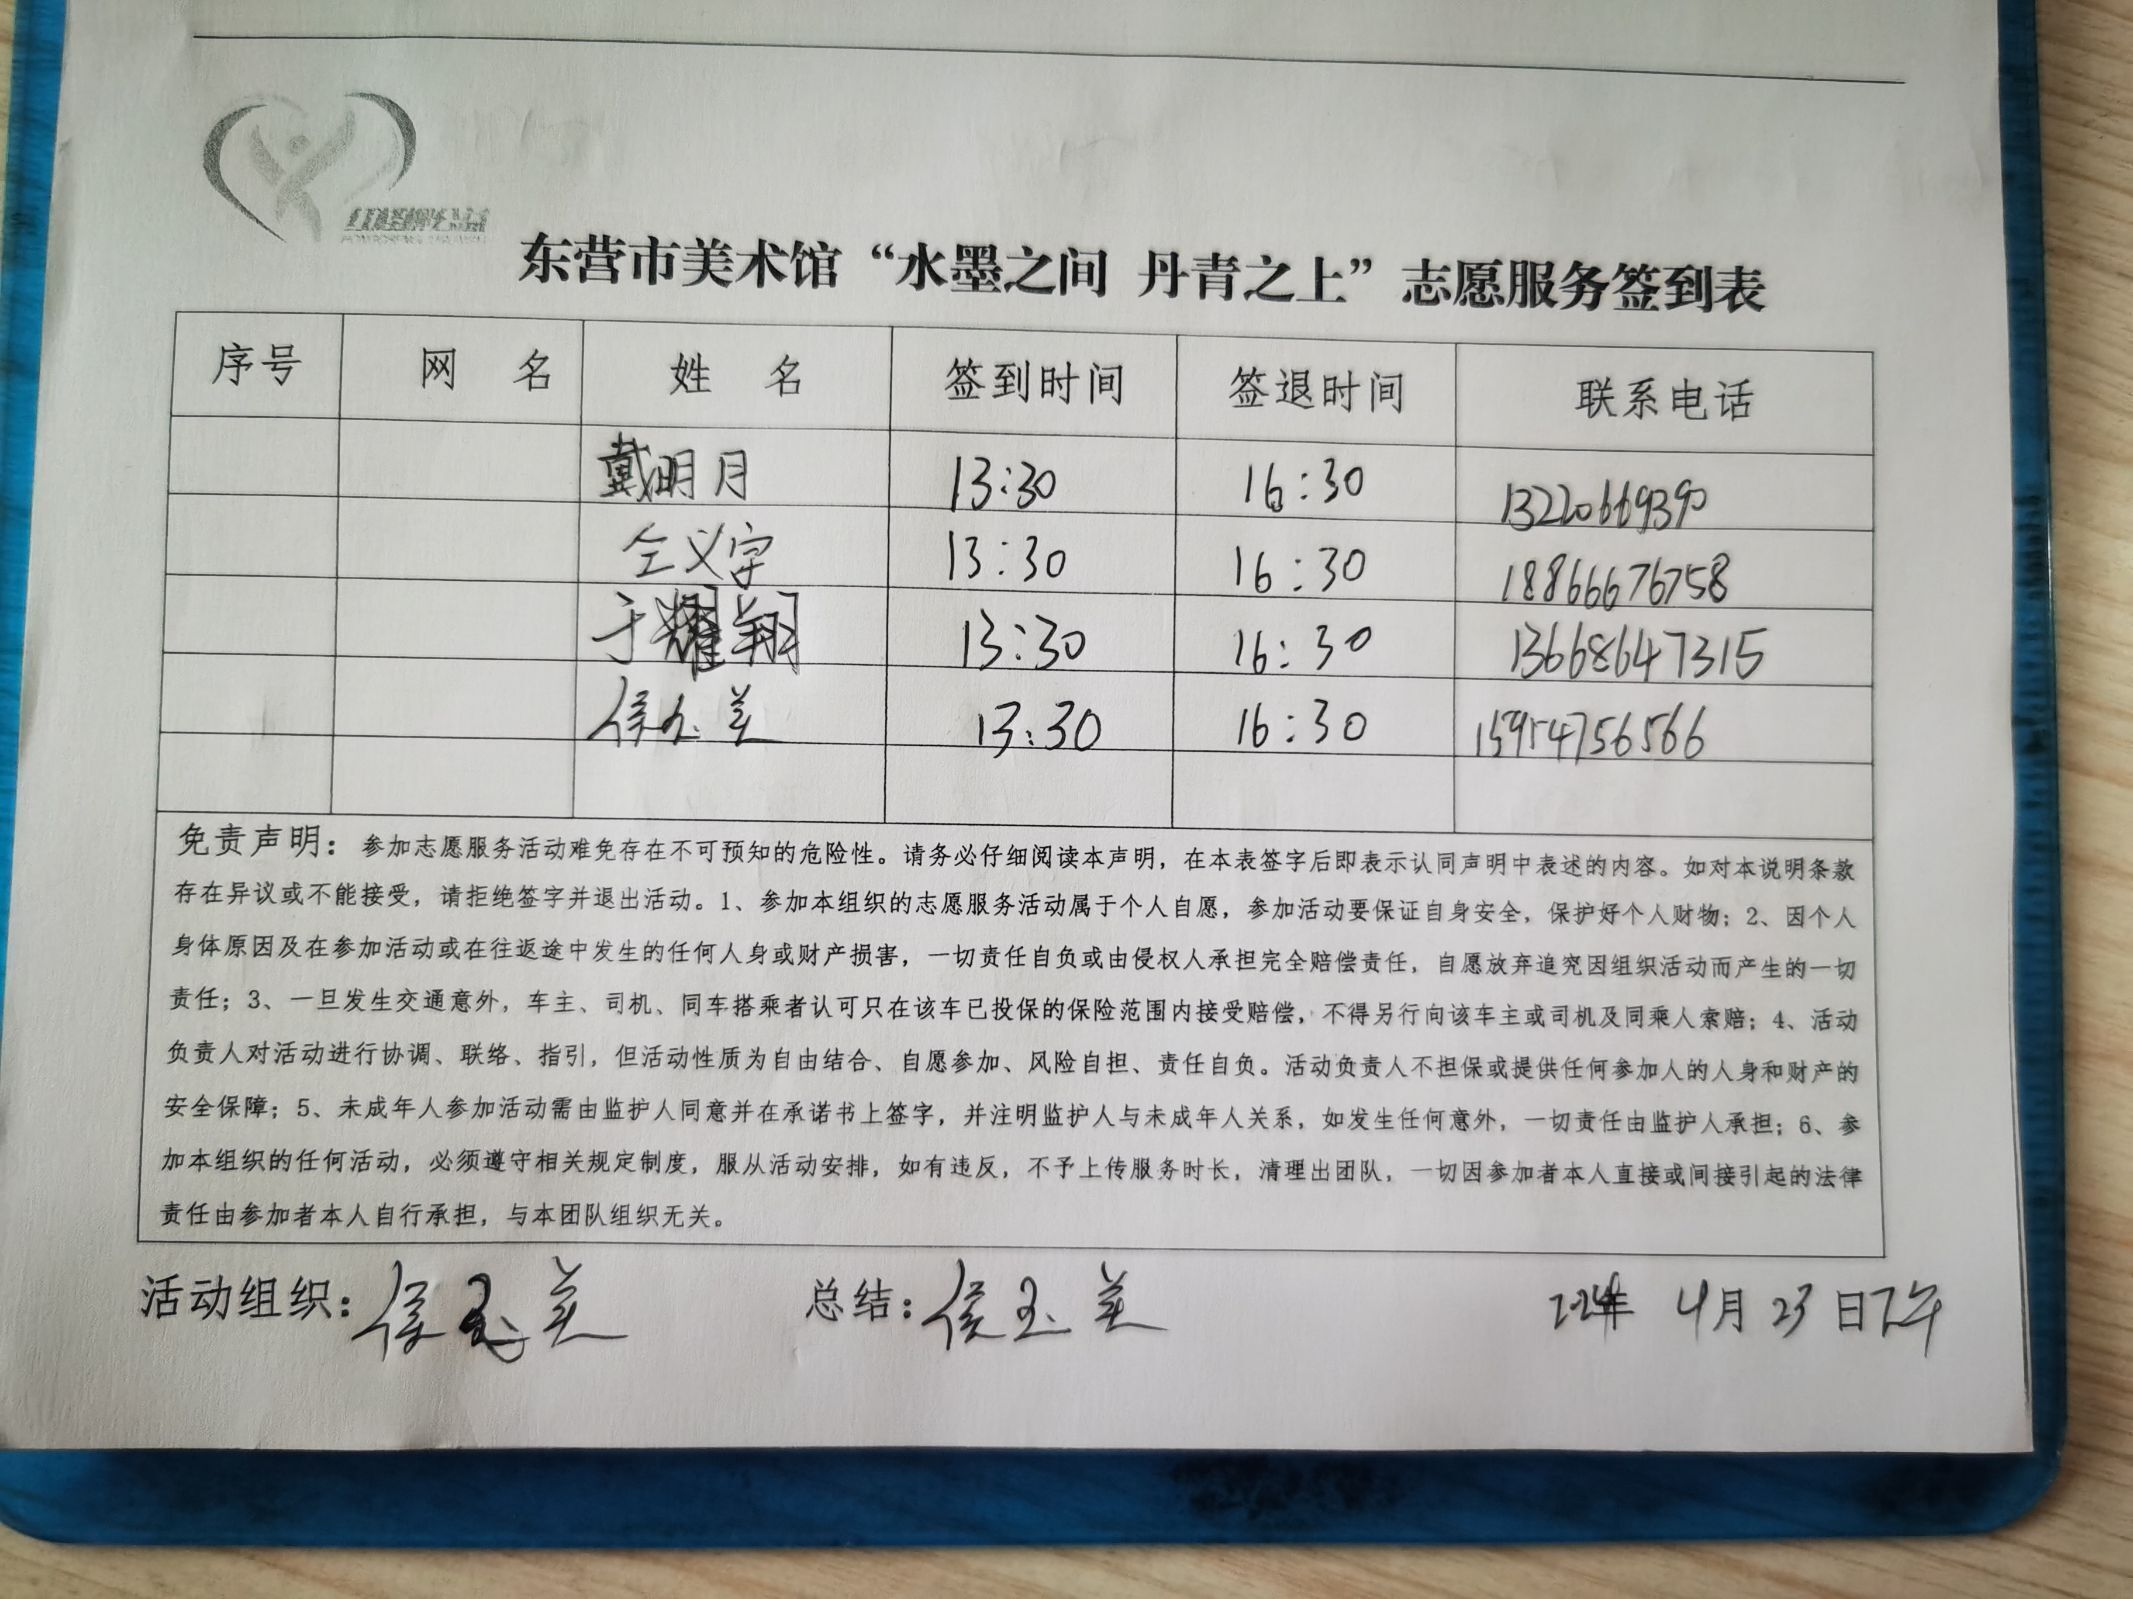 东营市美术馆“水墨之间 丹青之上”志愿服务签到表
序号 网 名 姓 名 签到时间 签退时间 联系电话
戴明月 13:30 16:30 13220669390
仝义字 13:30 16:30 18866676758
于耀翔 13:30 16:30 13668647315
侯玉美 13:30 16:30 15954756566
免责声明：参加志愿服务活动难免存在不可预知的危险性。请务必仔细阅读本声明，在本表签字后即表示认同声明中表述的内容。如对本说明条款
存在异议或不能接受，请拒绝签字并退出活动。1、参加本组织的志愿服务活动属于个人自愿，参加活动要保证自身安全，保护好个人财物；2、因个人
身体原因及在参加活动或在往返途中发生的任何人身或财产损害，一切责任自负或由侵权人承担完全赔偿责任，自愿放弃追究因组织活动而产生的一切
责任；3、一旦发生交通意外，车主、司机、同车搭乘者认可只在该车已投保的保险范围内接受赔偿，不得另行向该车主或司机及同乘人索赔；4、活动
负责人对活动进行协调、联络、指引，但活动性质为自由结合、自愿参加、风险自担、责任自负。活动负责人不担保或提供任何参加人的人身和财产的
安全保障；5、未成年人参加活动需由监护人同意并在承诺书上签字，并注明监护人与未成年人关系，如发生任何意外，一切责任由监护人承担；6、参
加本组织的任何活动，必须遵守相关规定制度，服从活动安排，如有违反，不予上传服务时长，清理出团队，一切因参加者本人直接或间接引起的法律
责任由参加者本人自行承担，与本团队组织无关。
活动组织：侯玉美 总结：侯玉美 年 4月 23 日下午